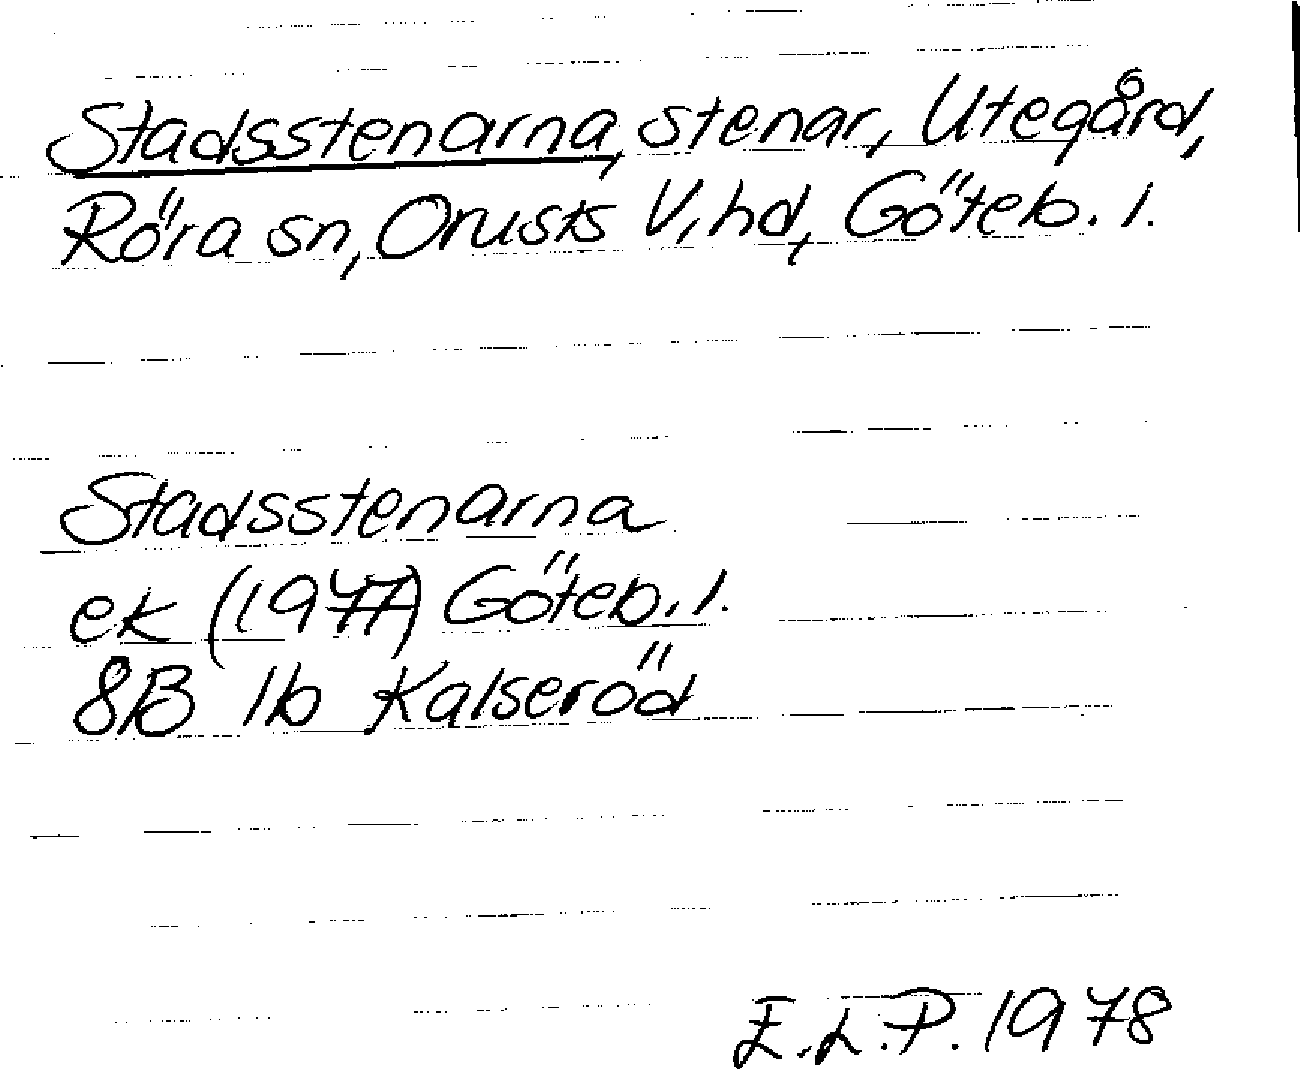 Stadsstenarna, stenar, Utegård,
Röra sn, Orusts V, hd, Göteb. l.
Stadsstenarna
ek (1977) Göteb. l.
8B 1b Kalseröd
E.L.P. 1978